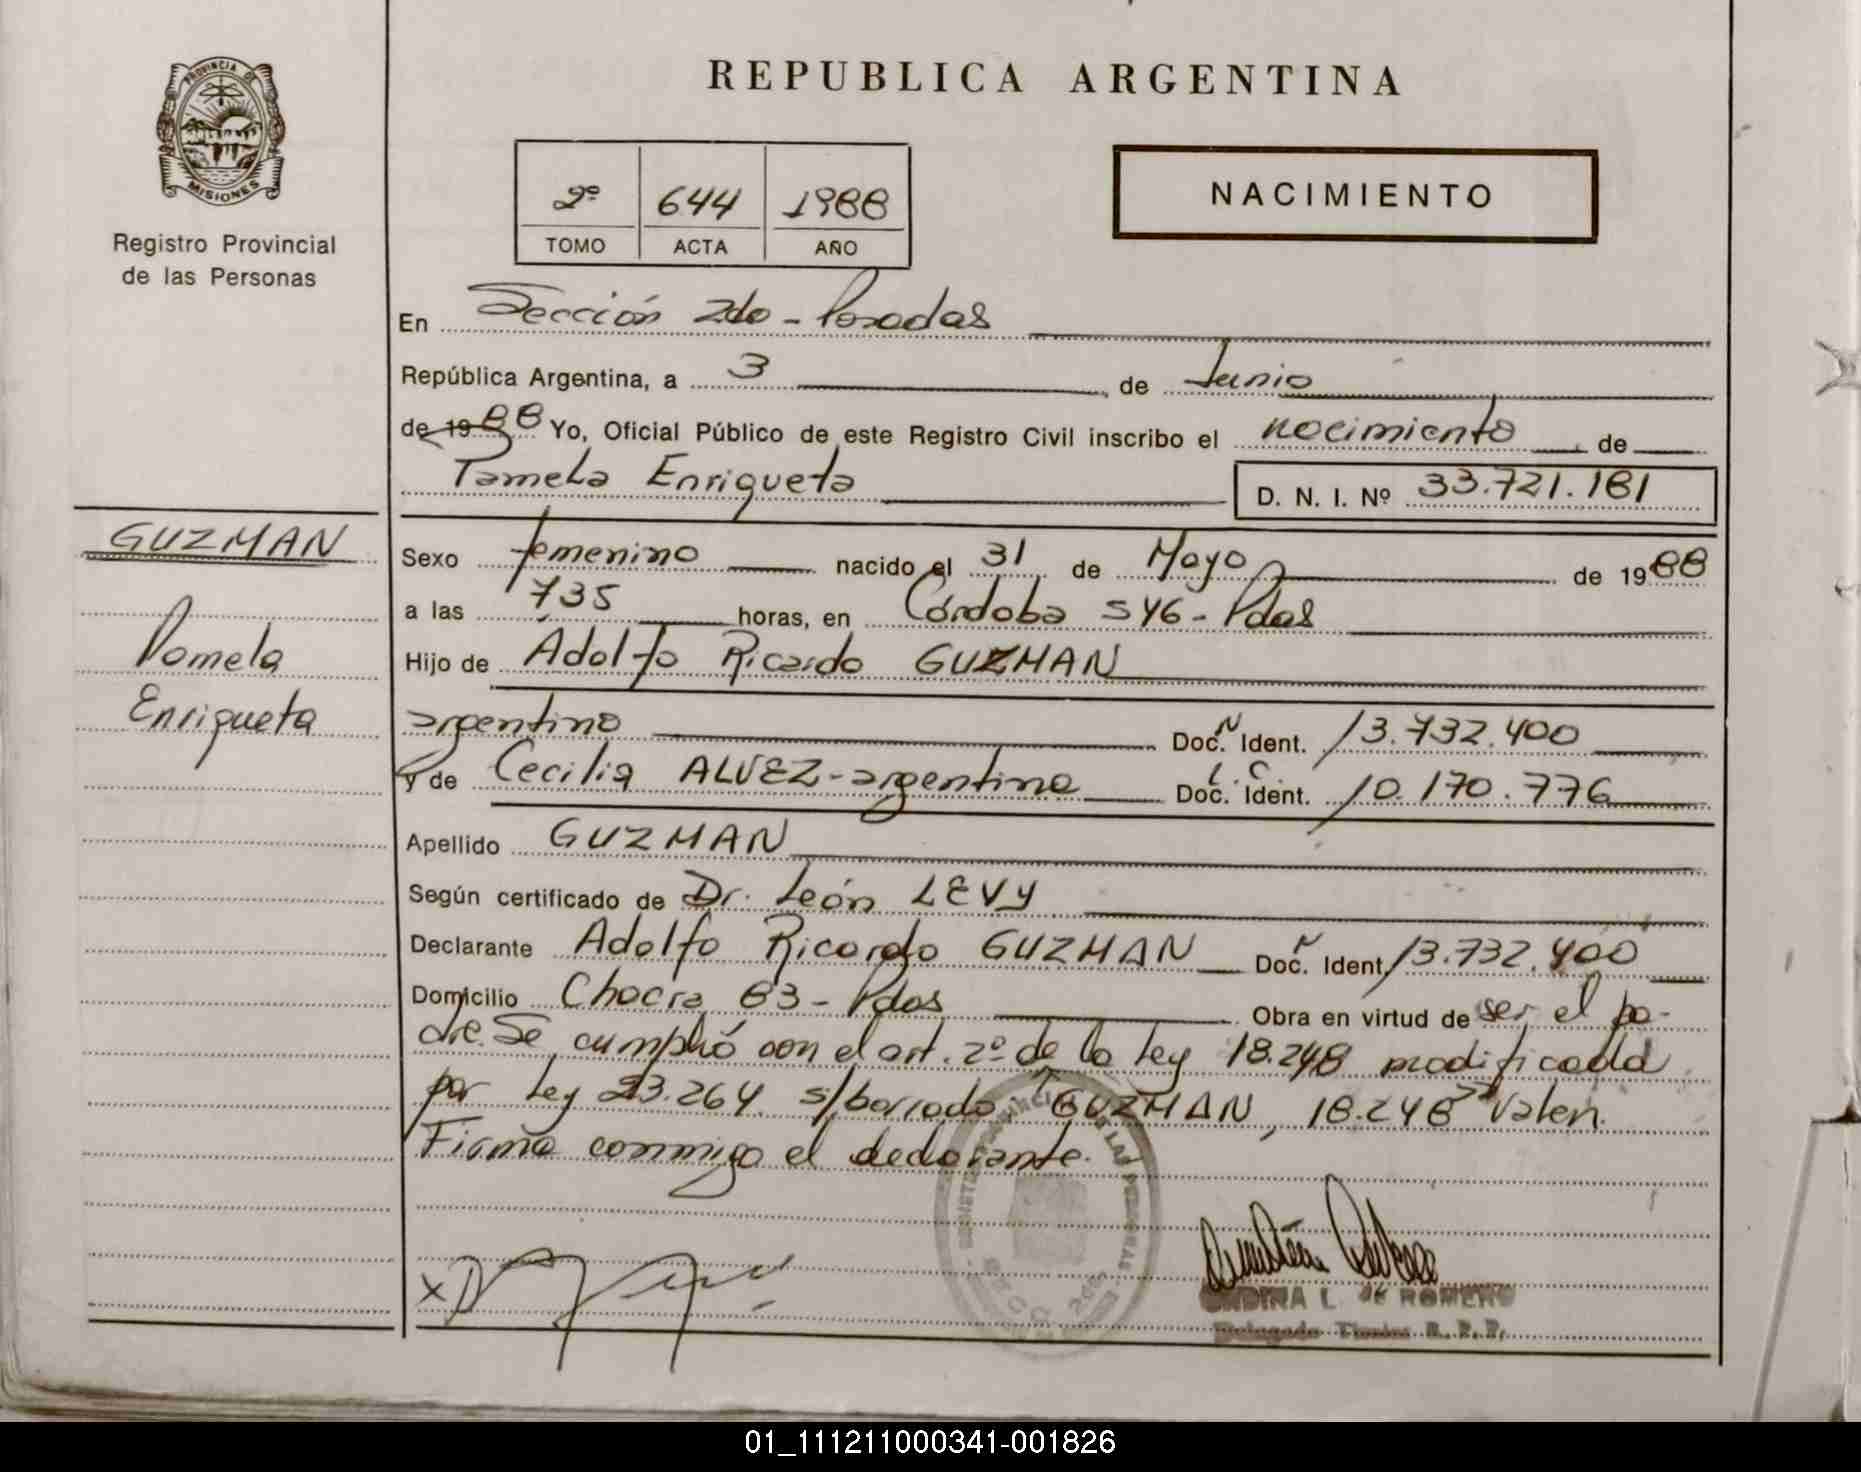 PROVINCIA DE
MISIONES
Registro Provincial
de las Personas
REPUBLICA ARGENTINA
2º 644 1988
TOMO ACTA AÑO
NACIMIENTO
En Sección 2do - Posadas
República Argentina, a 3 de Junio
de 1988 Yo, Oficial Público de este Registro Civil inscribo el nacimiento de
Pamela Enriqueta D. N. I. Nº 33.721.181
GUZMAN
Pamela
Enriqueta
Sexo femenino nacido el 31 de Mayo de 1988
a las 7,35 horas, en Córdoba 546 - Pdas
Hijo de Adolfo Ricardo GUZMAN
argentino Doc. Ident. 13.732.400
y de Cecilia ALVEZ - argentina L.C. Doc. Ident. 10.170.776
Apellido GUZMAN
Según certificado de Dr. León LEVY
Declarante Adolfo Ricardo GUZMAN Doc. Ident. 13.732.400
Domicilio Chacra 83 - Pdas Obra en virtud de ser el pa-
dre. Se cumplió con el art. 2º de la Ley 18.248 modificada
por Ley 23.264. s/borrado: GUZMAN, 18.248 Valen.
Firma conmigo el declarante.
ONDINA L. de ROMERO
Delegado Titular R. P. P.
01_111211000341-001826